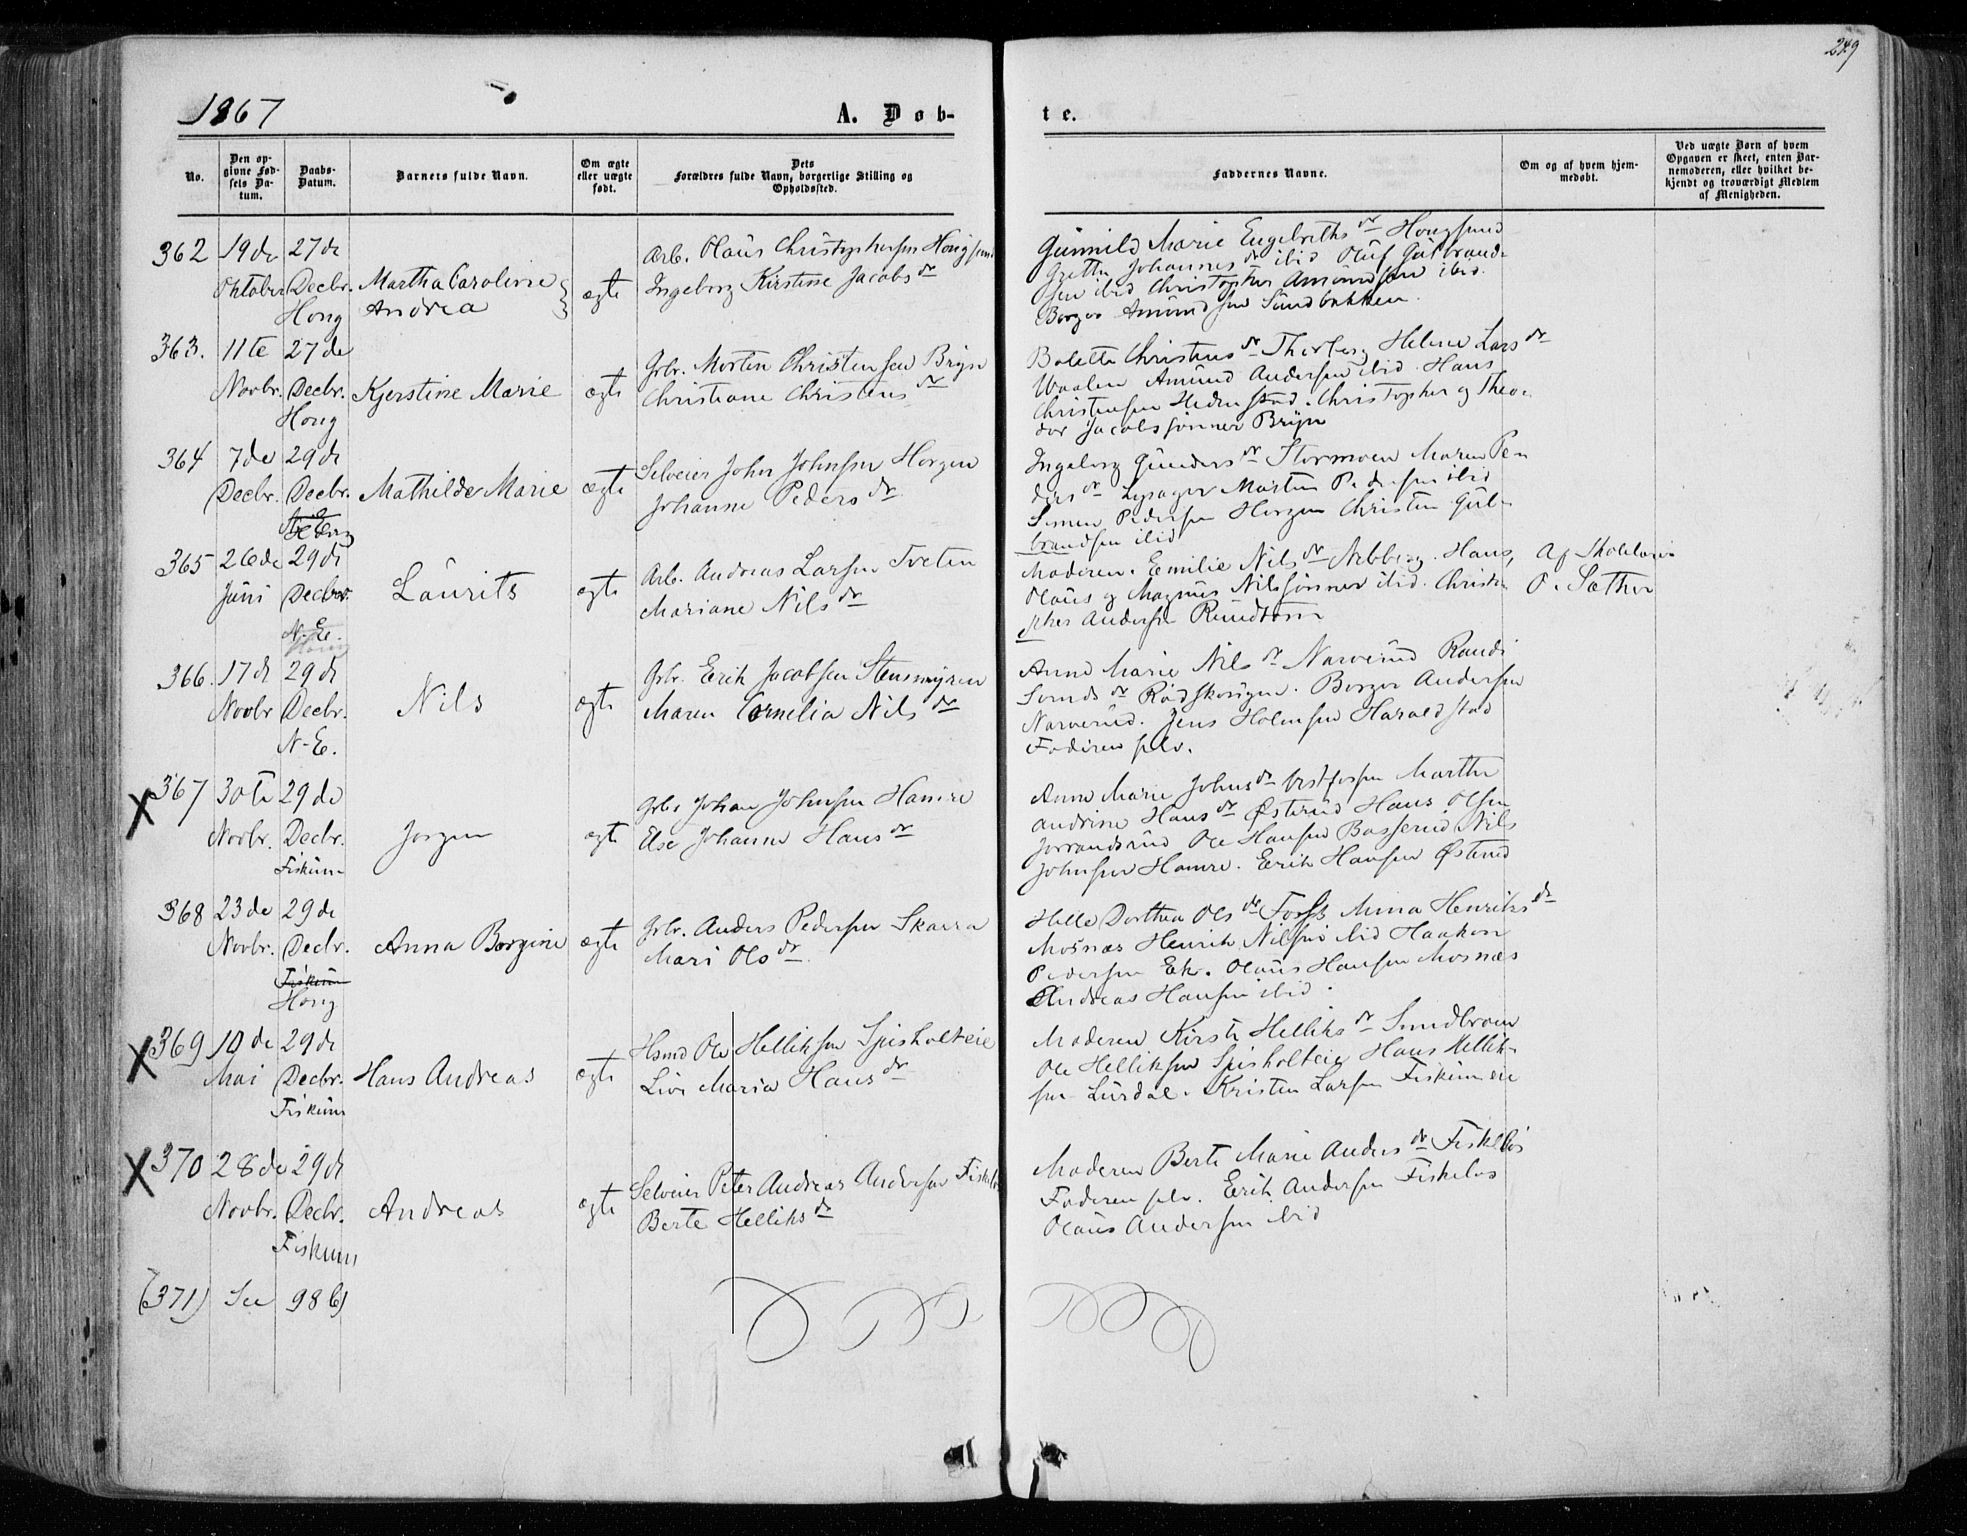 249
1867
A. Døb-
te.
No.
Den op-
givne Fød-
sels Da-
tum.
Daabs-
Datum.
Barnets fulde Navn.
Om ægte
eller uægte
født.
Dets
Forældres fulde Navn, borgerlige Stilling og
Opholdssted.
Faddernes Navne.
Om og af hvem hjem-
medøbt.
Ved uægte Børn af hvem
Opgaven er skeet, enten Bar-
nemoderen, eller hvilket be-
kjendt og troværdigt Medlem
af Menigheden.
362
19de
Oktober
27de
Decbr.
Houg
Martha Caroline
Andrea
ægte
Arb. Olaus Christophersen Hougsund
Ingeborg Kirstine Jacobsdr
Gunnild Marie Engebrethsdr Hougsund
Grethe Johannesdr ibid Oluf Gulbrand-
sen ibid Christopher Amundsen ibid.
Borger Amundsen Sundbakken.
363.
11te
Novbr.
27de
Decbr.
Houg
Kjerstine Marie
ægte
Grbr. Morten Christensen Bryn
Christiane Christensdr
Bolette Christensdr Thorberg Helene Larsdr
Waalen Amund Andersen ibid. Hans
Christensen Hedenstad. Christopher og Theo-
dor Jacobssønner Bryn
364
7de
Decbr.
29de
Decbr.
N-E.
Mathilde Marie
ægte
Selveier John Johnsen Horgen
Johanne Pedersdr
Ingeborg Gundersdr Stormoen Maren Pe-
dersdr Lysager Morten Pedersen ibid
Simen Pedersen Horgen Christen Gul-
brandsen ibid
365
26de
Juni
29de
Decbr.
N-E.
Laurits
ægte
Arb. Andreas Larsen Tveten
Mariane Nilsdr
Moderen. Emilie Nilsdr Nebberg. Hans,
Olaus og Magnus Nilssønner ibid. Christo-
pher Andersen Rundtom
Af Skolelærer
O. Sæther
366.
17de
Novbr
29de
Decbr.
N-E.
Nils
ægte
Grbr. Erik Jacobsen Stensmyren
Maren Cornelia Nilsdr
Anne Marie Nilsdr Narverud Randi
Borger Andersen
Narverud. Jens Holmsen Haraldstad
Faderen selv.
367
30te
Novbr.
29de
Decbr.
Fiskum
Jørgen
ægte
Grbr. Johan Johnsen Hamre
Else Johanne Hansdr
Anne Marie Johnsdr Vestfossen Marthe
Andrine Hansdr Østerud Hans Olsen
Jorrandsrud Ole Hansen Basserud Nils
Johnsen Hamre. Erik Hansen Østerud
368
23de
Novbr.
29de
Decbr.
Fiskum
Houg
Anna Borgine
ægte
Grbr. Anders Pedersen Skarra
Mari Olsdr
Helle Dorthea Olsdr Fossh Mina Henriksdr
Mosnæs Henrik Nilsen ibid Haakon
Pedersen Ek. Olaus Hansen Mosnæs
Andreas Hansen ibid.
369
10de
Mai
29de
Decbr.
Fiskum
Hans Andreas
ægte
Hsmd Ole Helliksen Spisholteie
Live Maria Hansdr
Moderen Kirsti Helliksdr Sundbroen
Ole Helliksen Spisholteie Hans Hellik-
sen Lurdal. Kristen Larsen Fiskumeie
370
28de
Novbr.
29de
Decbr.
Fiskum
Andreas
ægte
Selveier Peter Andreas Andersen Fiskeløs
Berte Helliksdr
Moderen Berte Marie Andersdr Fiskeløs
Faderen selv. Erik Andersen Fiskeløs
Olaus Andersen ibid
(371)
See
98 b)